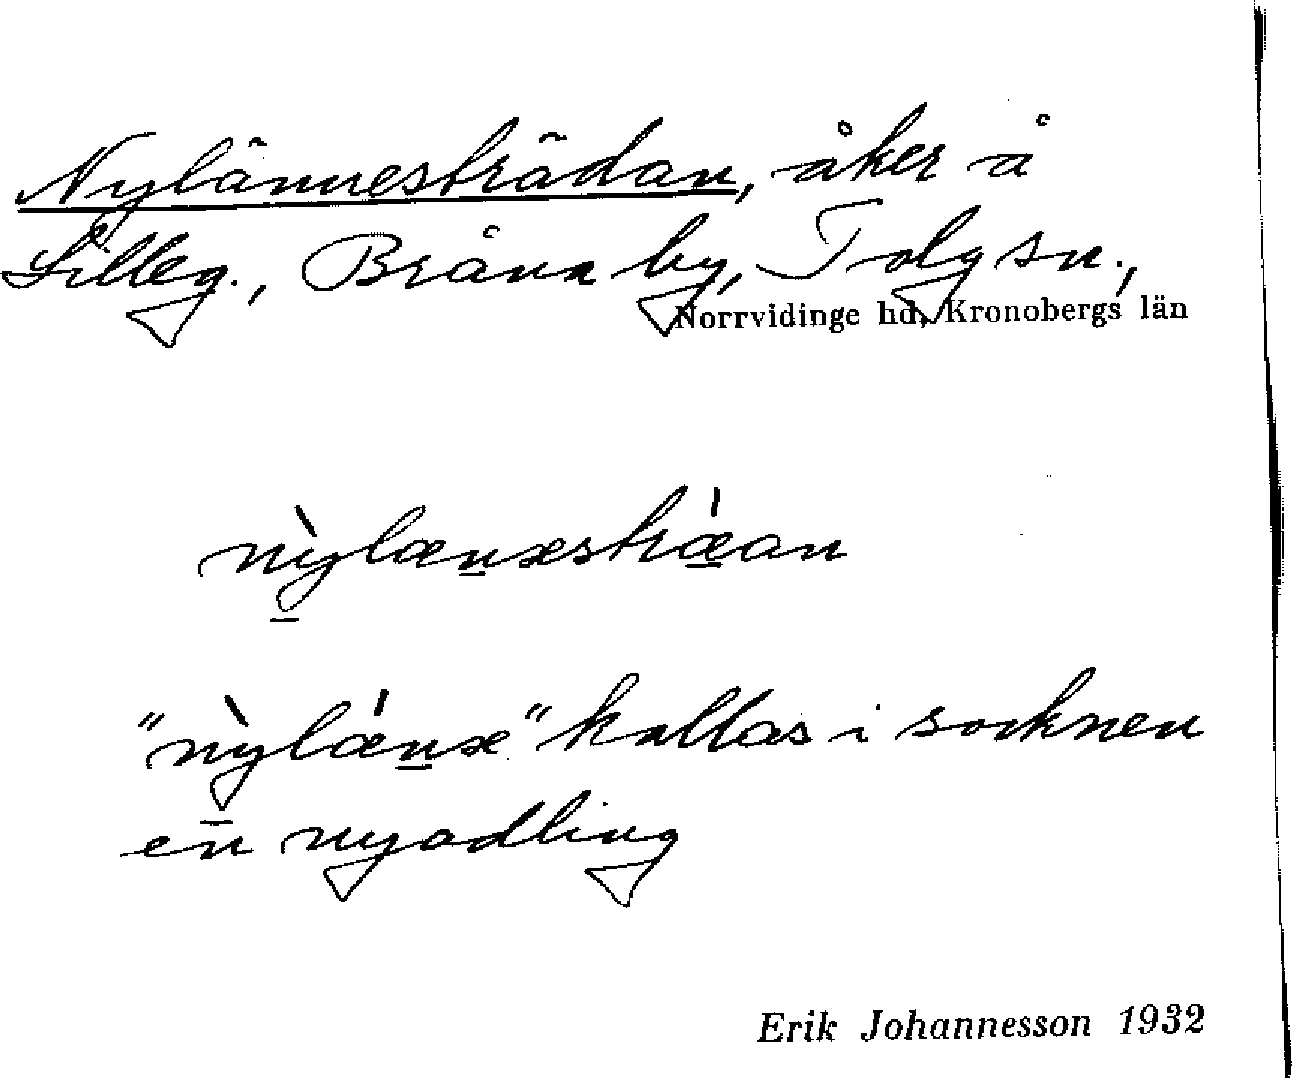 Nylännesträdan, åker å
Lilleg., Bråna by, Tolg sn.,
Norrvidinge hd, Kronobergs län
nỳlænæstræ̀an
"nỳlænæ" kallas i socknen
en nyodling
Erik Johannesson 1932